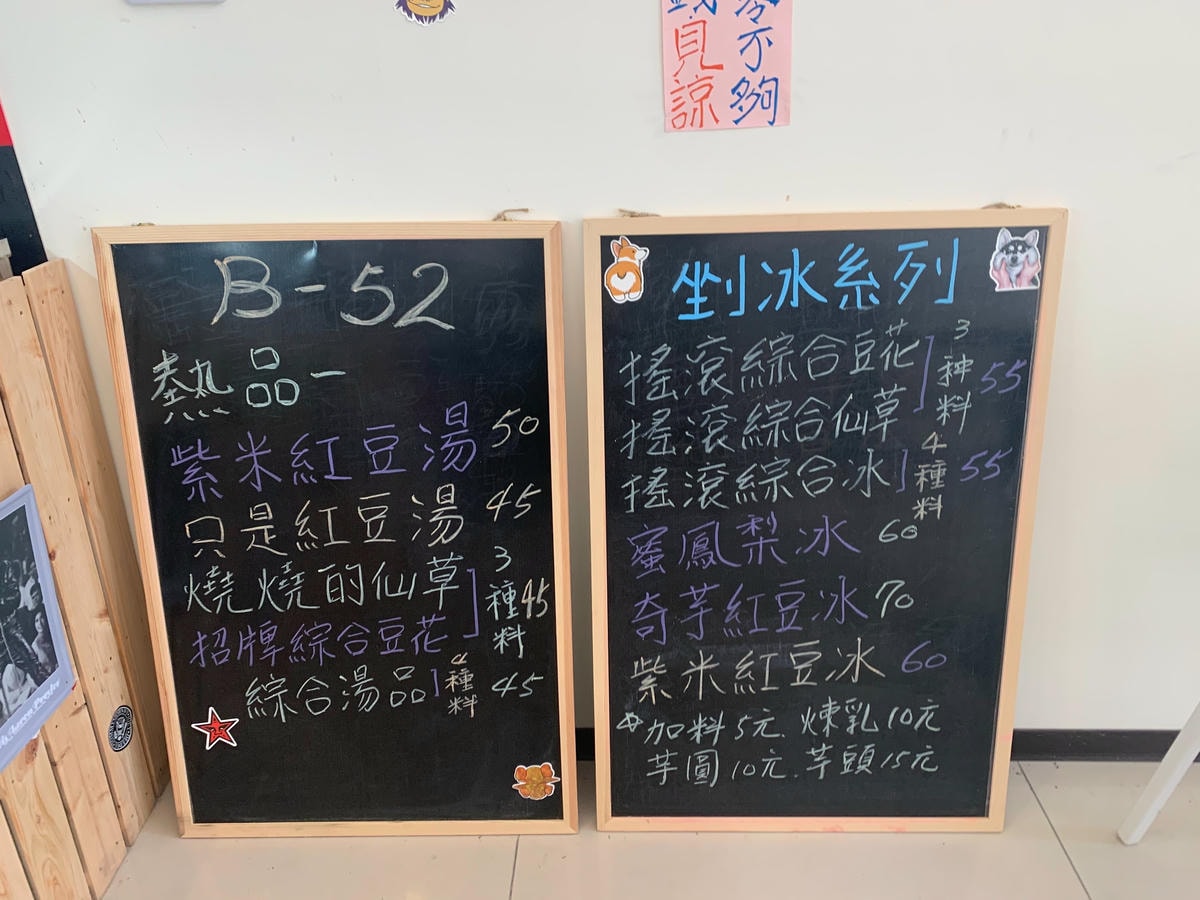 零不夠
見諒
B-52
熱品-
紫米紅豆湯 50
只是紅豆湯 45
燒燒的仙草
招牌綜合豆花
3種料 45
綜合湯品 4種料 45
剉冰系列
搖滾綜合豆花
搖滾綜合仙草
3种料 55
搖滾綜合冰 4種料 55
蜜鳳梨冰 60
奇芋紅豆冰 70
紫米紅豆冰 60
加料5元.煉乳10元
芋圓10元.芋頭15元